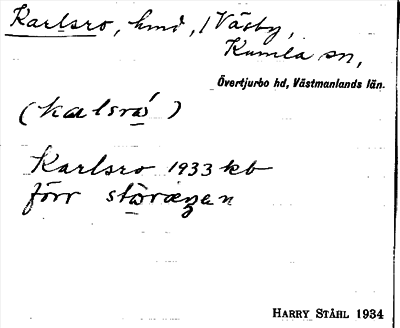 Karlsro, hmd, / Väsby,
Kumla sn,
Övertjurbo hd, Västmanlands län.
(kalsró)
Karlsro 1933 kb
förr
HARRY STÅHL 1934